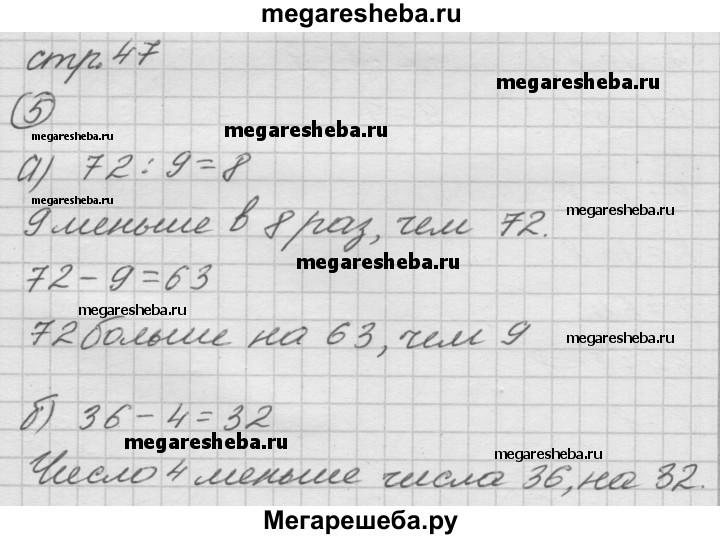 megaresheba.ru
стр. 47
megaresheba.ru
5
megaresheba.ru
megaresheba.ru
а) 72 : 9 = 8
megaresheba.ru
9 меньше в 8 раз, чем 72.
megaresheba.ru
megaresheba.ru
72 - 9 = 63
megaresheba.ru
72 больше на 63, чем 9
megaresheba.ru
б) 36 - 4 = 32
megaresheba.ru
megaresheba.ru
Число 4 меньше числа 36, на 32.
Мегарешеба.ру